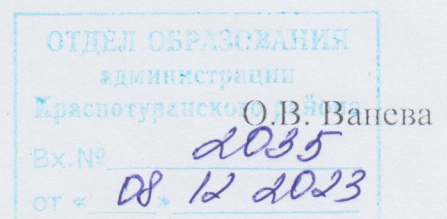 ОТДЕЛ ОБРАЗОВАНИЯ
администрации
Краснотуранского района
О.В. Ванева
Вх.№ 2035
от « 08 » 12 2023